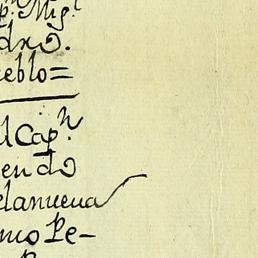 pⁿ. Migˡ
dro.
eblo=
l Capⁿ.
en do
elanueva
mo Pe-